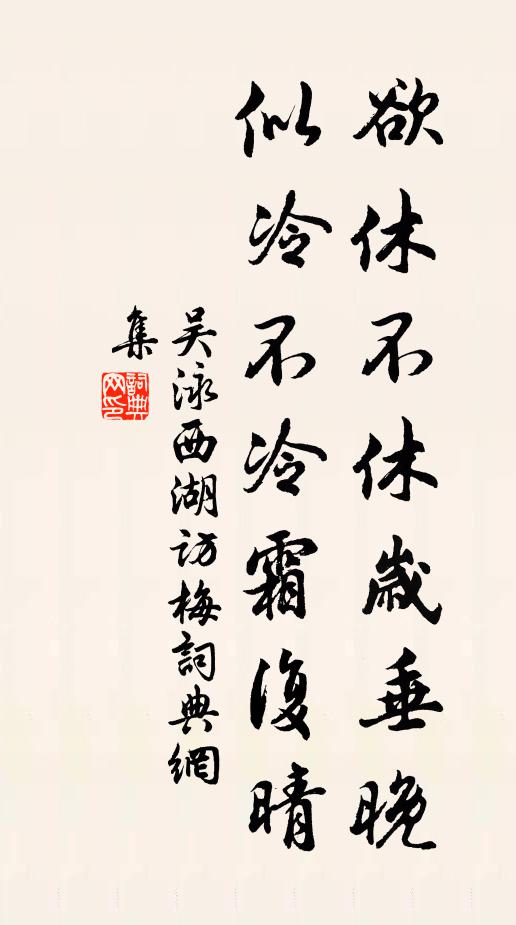 欲休不休歲垂晚
似冷不冷霜復晴
吳泳西湖訪梅詞典網
集
詞典
网印